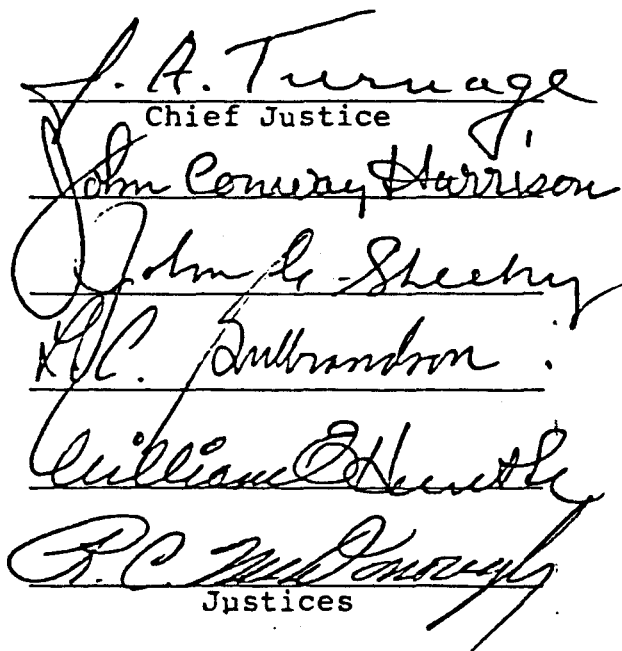 J. A. Turnage
Chief Justice
John Conway Harrison
John C. Sheehy
L. C. Gulbrandson
William E. Hunt
R. C. McDonough
Justices